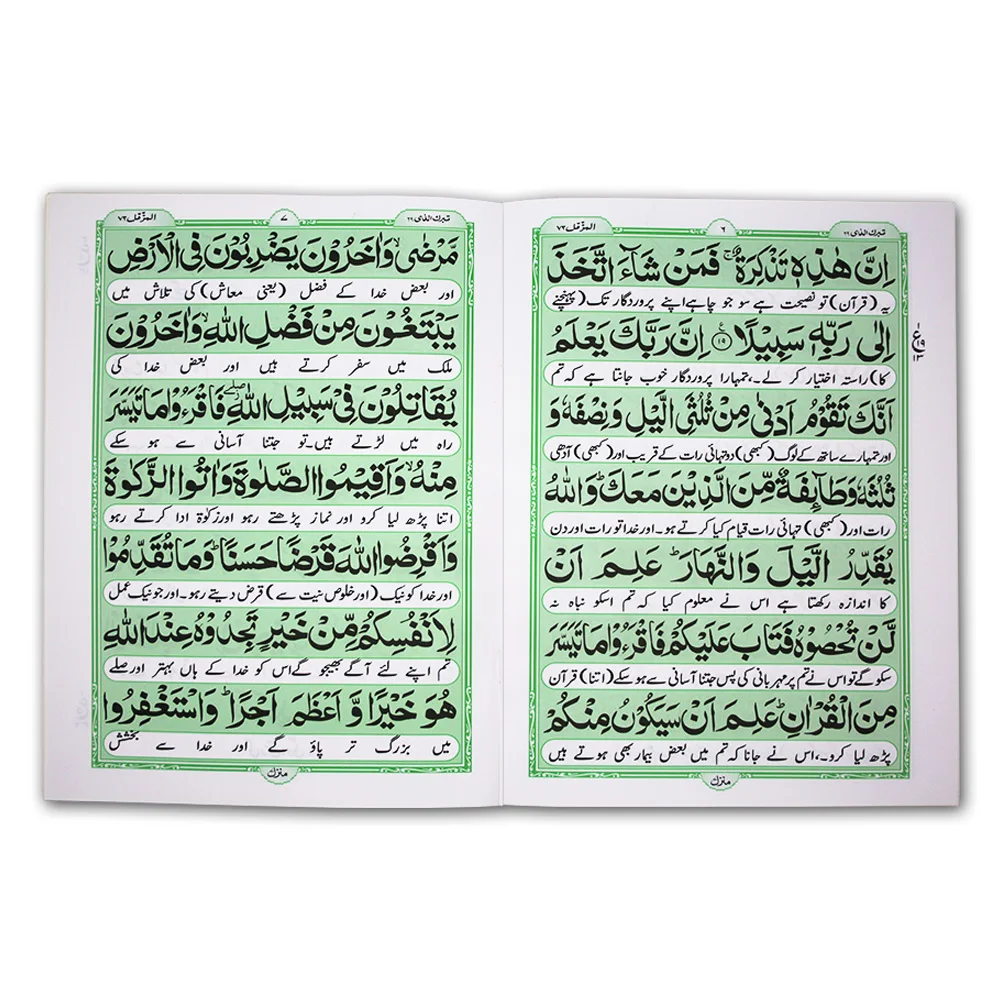 تبرك الذی ٢٩
٦
المزّمّل ٧٣
اِنَّ هٰذِهٖ تَذْكِرَةٌ ۚ فَمَنْ شَآءَ اتَّخَذَ
یہ (قرآن) تو نصیحت ہے سو جو چاہے اپنے پروردگار تک (پہنچنے
اِلٰى رَبِّهٖ سَبِيْلًا ﴿١٩﴾ اِنَّ رَبَّكَ يَعْلَمُ
کا) راستہ اختیار کر لے۔، تمہارا پروردگار خوب جانتا ہے کہ تم
اَنَّكَ تَقُوْمُ اَدْنٰى مِنْ ثُلُثَيِ الَّيْلِ وَنِصْفَهٗ وَ
اور تمہارے ساتھ کے لوگ (کبھی) دو تہائی رات کے قریب اور (کبھی) آدھی
ثُلُثَهٗ وَطَآىِٕفَةٌ مِّنَ الَّذِيْنَ مَعَكَ ؕ وَاللّٰهُ
رات اور (کبھی) تہائی رات قیام کیا کرتے ہو۔ اور خدا تو رات اور دن
يُقَدِّرُ الَّيْلَ وَالنَّهَارَ ؕ عَلِمَ اَنْ
کا اندازہ رکھتا ہے اس نے معلوم کیا کہ تم اسکو نباہ نہ
لَّنْ تُحْصُوْهُ فَتَابَ عَلَيْكُمْ فَاقْرَءُوْا مَا تَيَسَّرَ
سکو گے تو اس نے تم پر مہربانی کی پس جتنا آسانی سے ہو سکے (اتنا) قرآن
مِنَ الْقُرْاٰنِ ؕ عَلِمَ اَنْ سَيَكُوْنُ مِنْكُمْ
پڑھ لیا کرو۔، اس نے جانا کہ تم میں بعض بیمار بھی ہوتے ہیں
منزل
تبرك الذی ٢٩
٧
المزّمّل ٧٣
مَّرْضٰى ۙ وَاٰخَرُوْنَ يَضْرِبُوْنَ فِى الْاَرْضِ
اور بعض خدا کے فضل (یعنی معاش) کی تلاش میں
يَبْتَغُوْنَ مِنْ فَضْلِ اللّٰهِ ۙ وَاٰخَرُوْنَ
ملک میں سفر کرتے ہیں اور بعض خدا کی
يُقَاتِلُوْنَ فِيْ سَبِيْلِ اللّٰهِ ۖ فَاقْرَءُوْا مَا تَيَسَّرَ
راہ میں لڑتے ہیں۔ تو جتنا آسانی سے ہو سکے
مِنْهُ ۙ وَاَقِيْمُوا الصَّلٰوةَ وَاٰتُوا الزَّكٰوةَ
اتنا پڑھ لیا کرو اور نماز پڑھتے رہو اور زکٰوۃ ادا کرتے رہو
وَاَقْرِضُوا اللّٰهَ قَرْضًا حَسَنًا ؕ وَمَا تُقَدِّمُوْا
اور خدا کو نیک (اور خلوص نیت سے) قرض دیتے رہو۔ اور جو نیک عمل
لِاَنْفُسِكُمْ مِّنْ خَيْرٍ تَجِدُوْهُ عِنْدَ اللّٰهِ
تم اپنے لئے آگے بھیجو گے اس کو خدا کے ہاں بہتر اور صلے
هُوَ خَيْرًا وَّ اَعْظَمَ اَجْرًا ؕ وَاسْتَغْفِرُوا
میں بزرگ تر پاؤ گے اور خدا سے بخشش
منزل